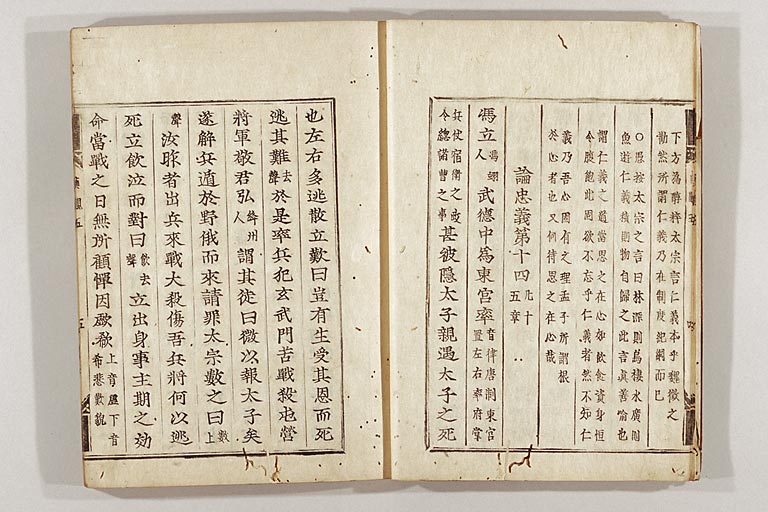 下方為醇粹太宗言仁義本乎魏徵之
勸然所謂仁義乃在制度紀綱而已
○愚按太宗之言曰林深則鳥棲水廣則
魚遊仁義積則物自歸之此言真善喻也
謂仁義之道當思之在心如飲食資身恒
令腹飽此固欲不忘乎仁義者然不知仁
義乃吾心固有之理孟子所謂根
於心者也又何待思之在心哉
論忠義第十四 凡十五章
馮立 馮翊人 武德中為東宮率 音律唐制東宮置左右率府掌
兵仗宿衛之政令總諸曹之事 甚被隱太子親遇太子之死
也左右多逃散立歎曰豈有生受其恩而死
逃其難 去聲 於是率兵犯玄武門苦戰殺屯營
將軍敬君弘 絳州人 謂其徒曰微以報太子矣
遂解兵遁於野俄而來請罪太宗數之曰 數上
聲 汝昨者出兵來戰大殺傷吾兵將何以逃
死立飲泣而對曰 飲去聲 立出身事主期之効
命當戰之日無所顧憚因歔欷 上音虛下音希悲歎貌